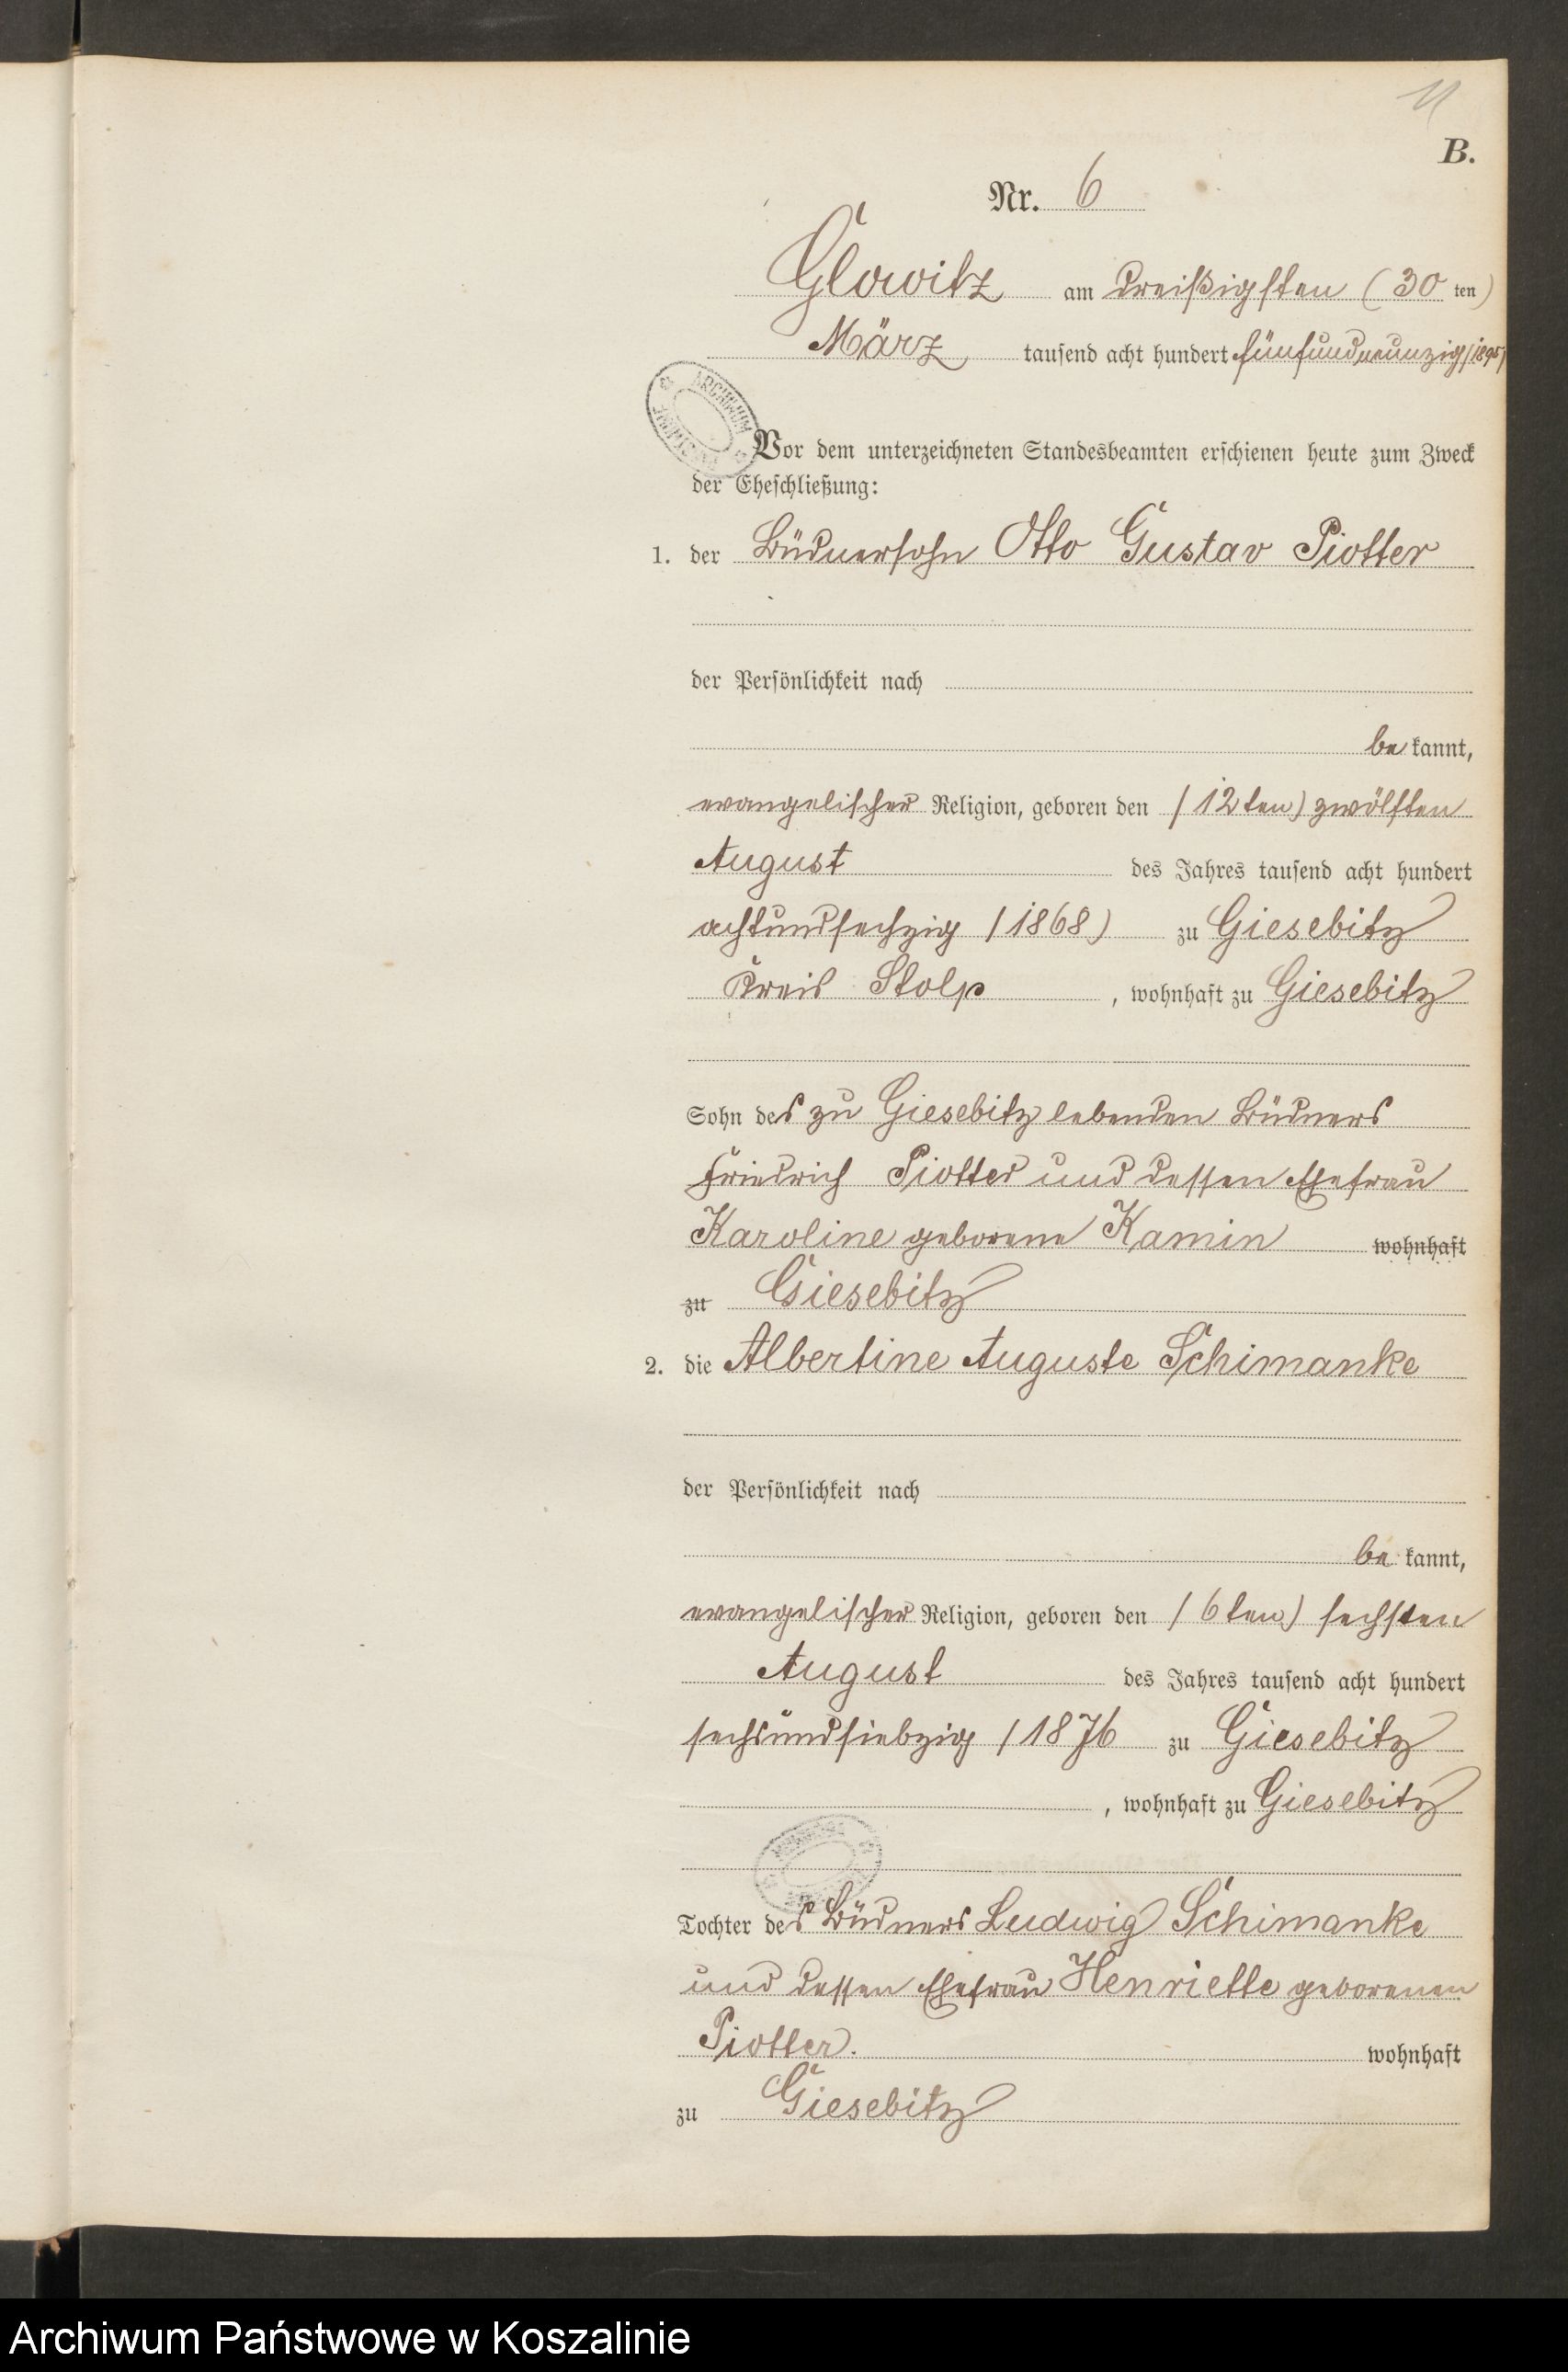 11
B.
Nr. 6
Glowitz am dreißigsten (30 ten)
März tausend acht hundert fünfundneunzig (1895)
ARCHIWUM
Vor dem unterzeichneten Standesbeamten erschienen heute zum Zweck
der Eheschließung:
1. der Büdnersohn Otto Gustav Piotter
der Persönlichkeit nach
be kannt,
evangelischer Religion, geboren den (12ten) zwölften
August des Jahres tausend acht hundert
achtundsechzig (1868) zu Giesebitz
Kreis Stolp, wohnhaft zu Giesebitz
Sohn des zu Giesebitz lebenden Büdners
Friedrich Piotter und dessen Ehefrau
Karoline geborene Kamin wohnhaft
zu Giesebitz
2. die Albertine Auguste Schimanke
der Persönlichkeit nach
be kannt,
evangelischer Religion, geboren den (6ten) sechsten
August des Jahres tausend acht hundert
sechsundsiebzig (1876 zu Giesebitz
, wohnhaft zu Giesebitz
Tochter des Büdners Ludwig Schimanke
und dessen Ehefrau Henriette geborenen
Piotter. wohnhaft
zu Giesebitz
Archiwum Państwowe w Koszalinie